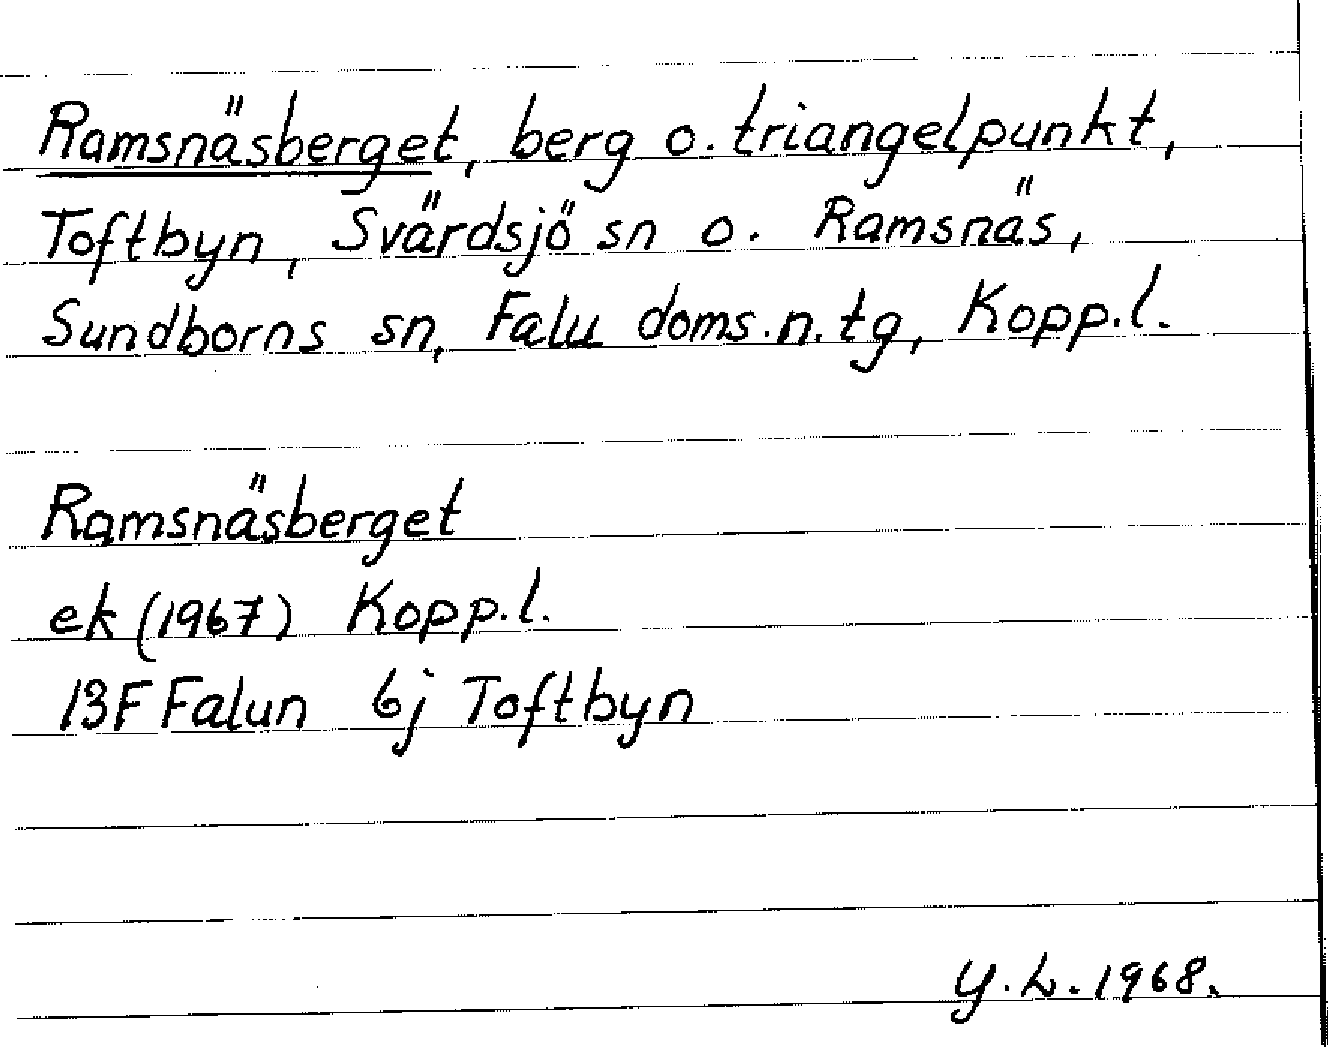 Ramsnäsberget, berg o. triangelpunkt,
Toftbyn, Svärdsjö sn o. Ramsnäs,
Sundborns sn, Falu doms.n.tg, Kopp.l.
Ramsnäsberget
ek (1967) Kopp.l.
13F Falun 6j Toftbyn
Y.L. 1968.